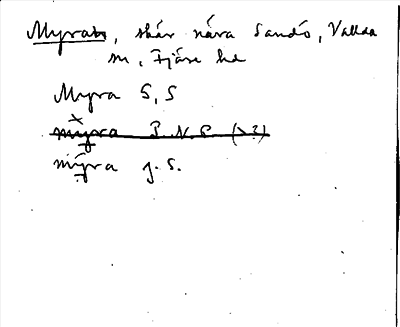 Myran, skär nära Sandö, Vallda
sn, Fjäre hd
Myra S, S
myra P.N.P (>?)
myra g.S.